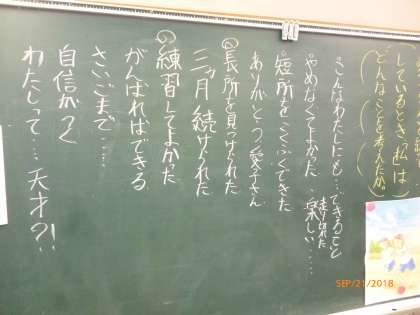 しているとき「私」は
どんなことを考えたか
こんなわたしにも…できること
やめなくてよかった…楽しい……
走りきれた
短所をこくふくできた
ありがとう愛子さん
の長所を見つけられた
三ヵ月続けられた
の練習してよかった
がんばればできる
さいごまで……
自信がつく
わたしって…天才?!
SEP/21/2018